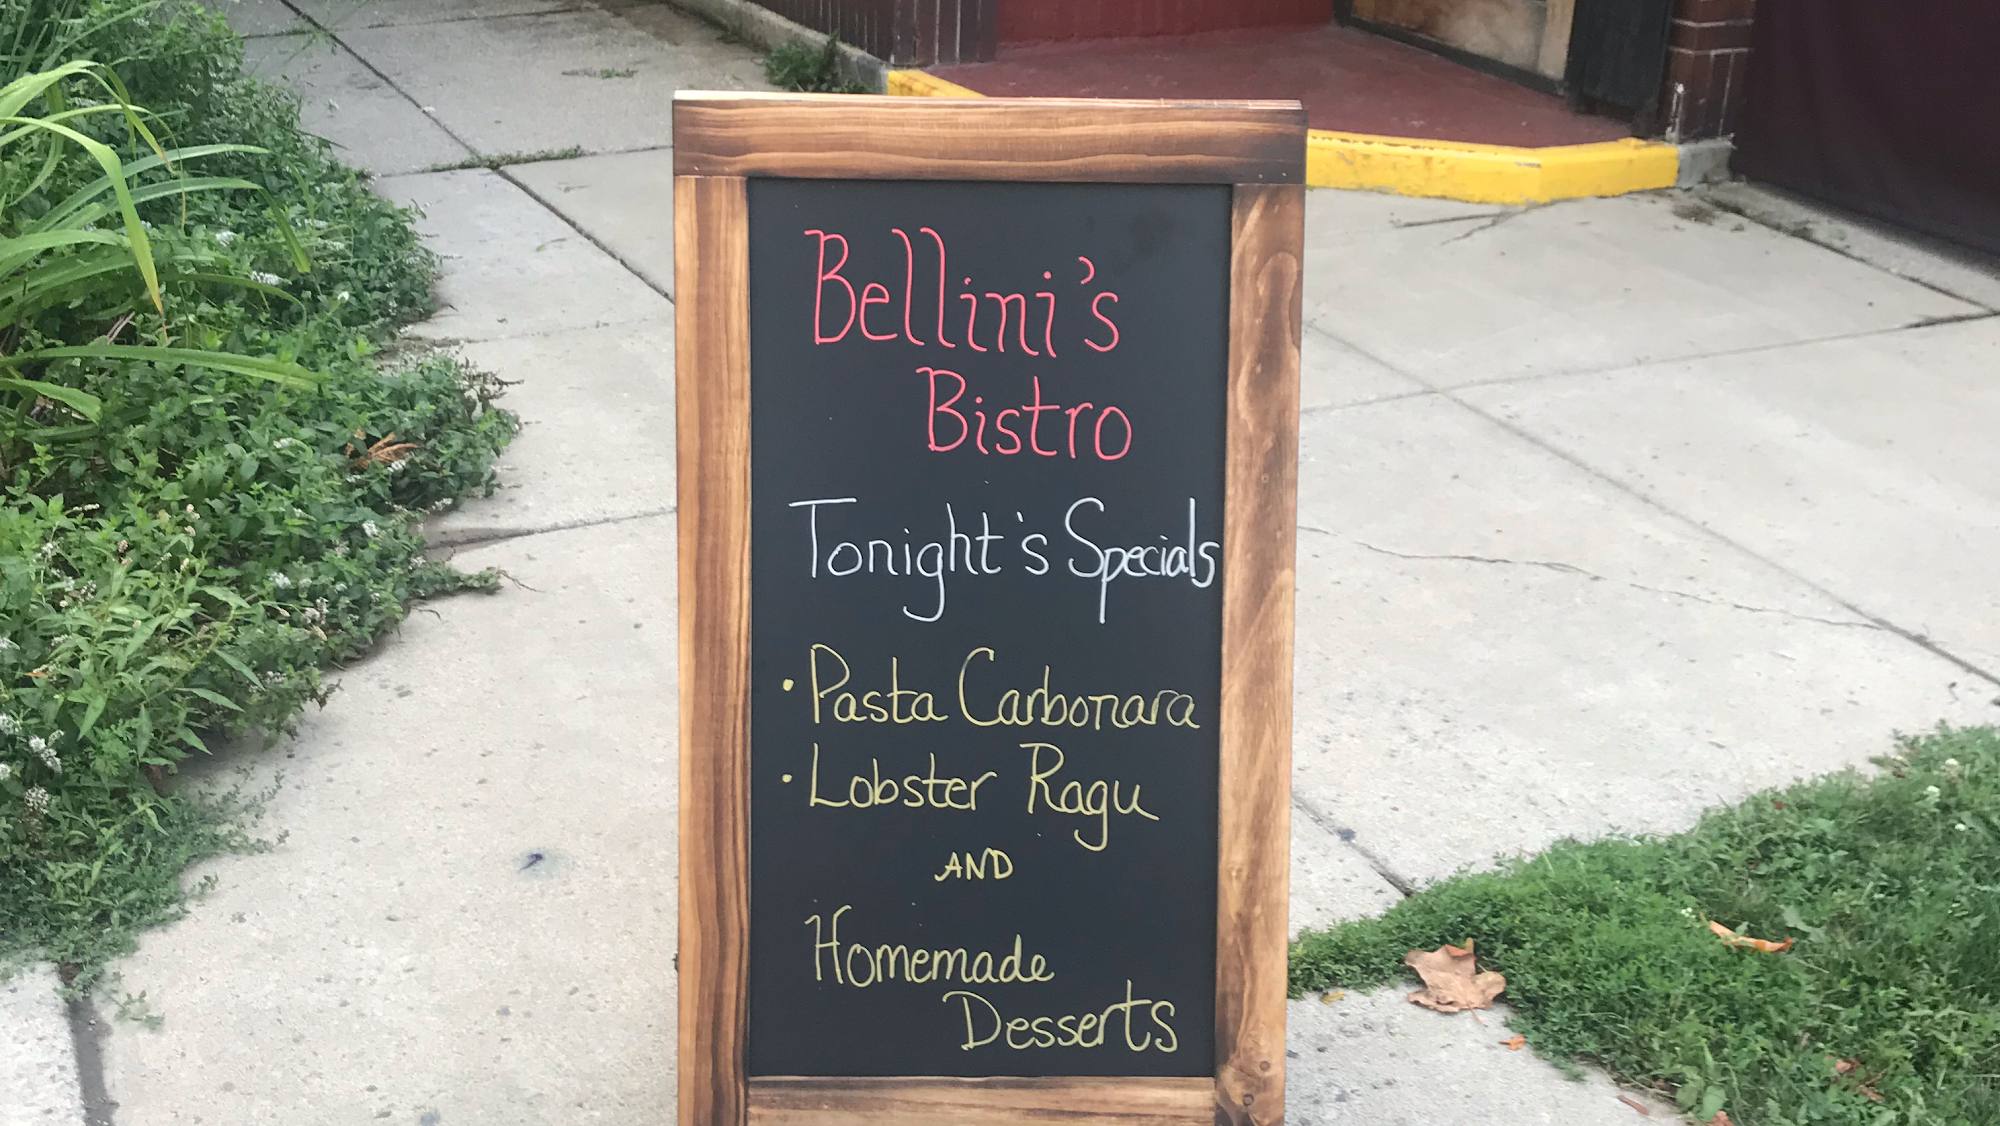 Bellini's
Bistro
Tonight's Specials
• Pasta Carbonara
• Lobster Ragu
AND
Homemade
Desserts